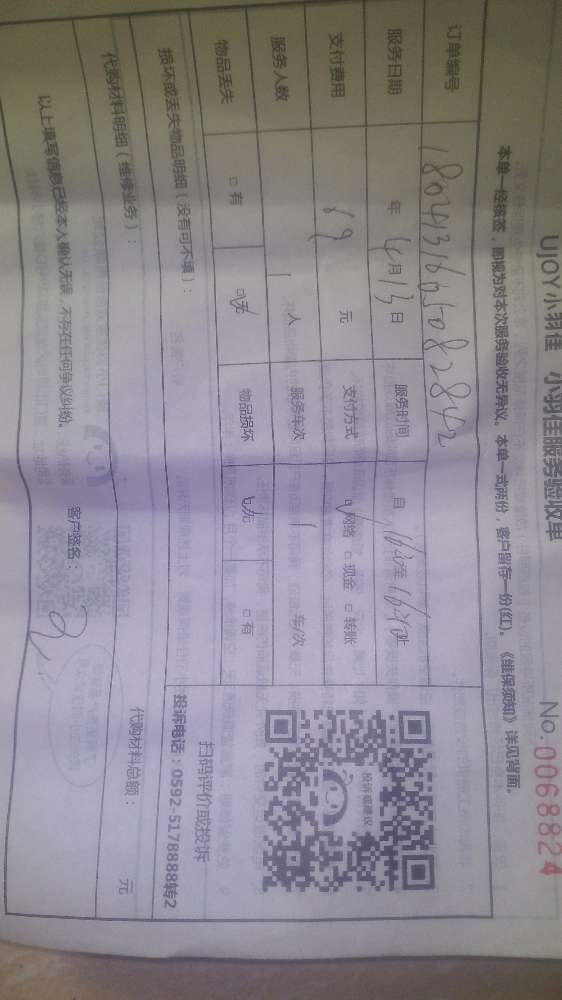 UJOY小羽佳 小羽佳服务验收单
No.0068824
本单一经核签，即视为对本次服务验收无异议。本单一式两份，客户留存一份(红)。《维保须知》详见背面。
订单编号 180413165082842
服务日期 年 4月13日 服务时间 自 至 16:40止
支付费用 元 支付方式 网络 □现金 □转账
服务人数 1人 服务车次 1 车/次
物品丢失 □有 □无 物品损坏 □无 □有
损坏或丢失物品明细（没有可不填）：
代购材料明细（维修业务）： 代购材料总额： 元
以上填写信息已经本人确认无误，不存在任何争议纠纷。 客户签名：
投诉或建议
扫码评价或投诉
投诉电话：0592-5178888转2